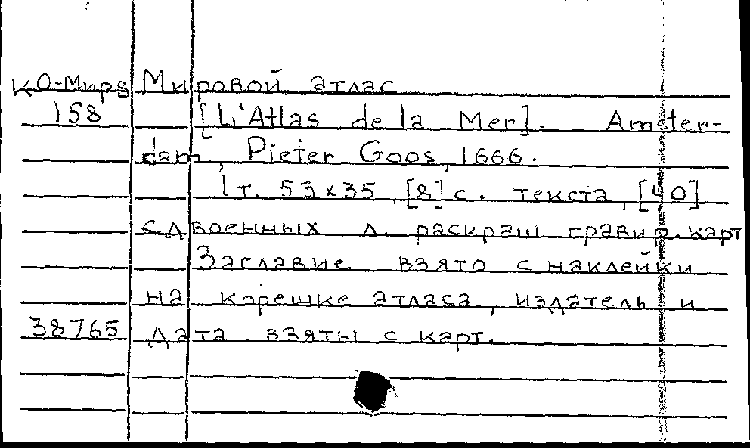 КО-Мира Мировой атлас
158 [L'Atlas de la Mer]. Amster-
dam, Pieter Goos, 1666.
1 т. 53x35, [8] с. текста, [40]
сдвоенных л. раскраш. гравир. карт
Заглавие взято с наклейки
на корешке атласа, издатель и
38765 дата взяты с карт.